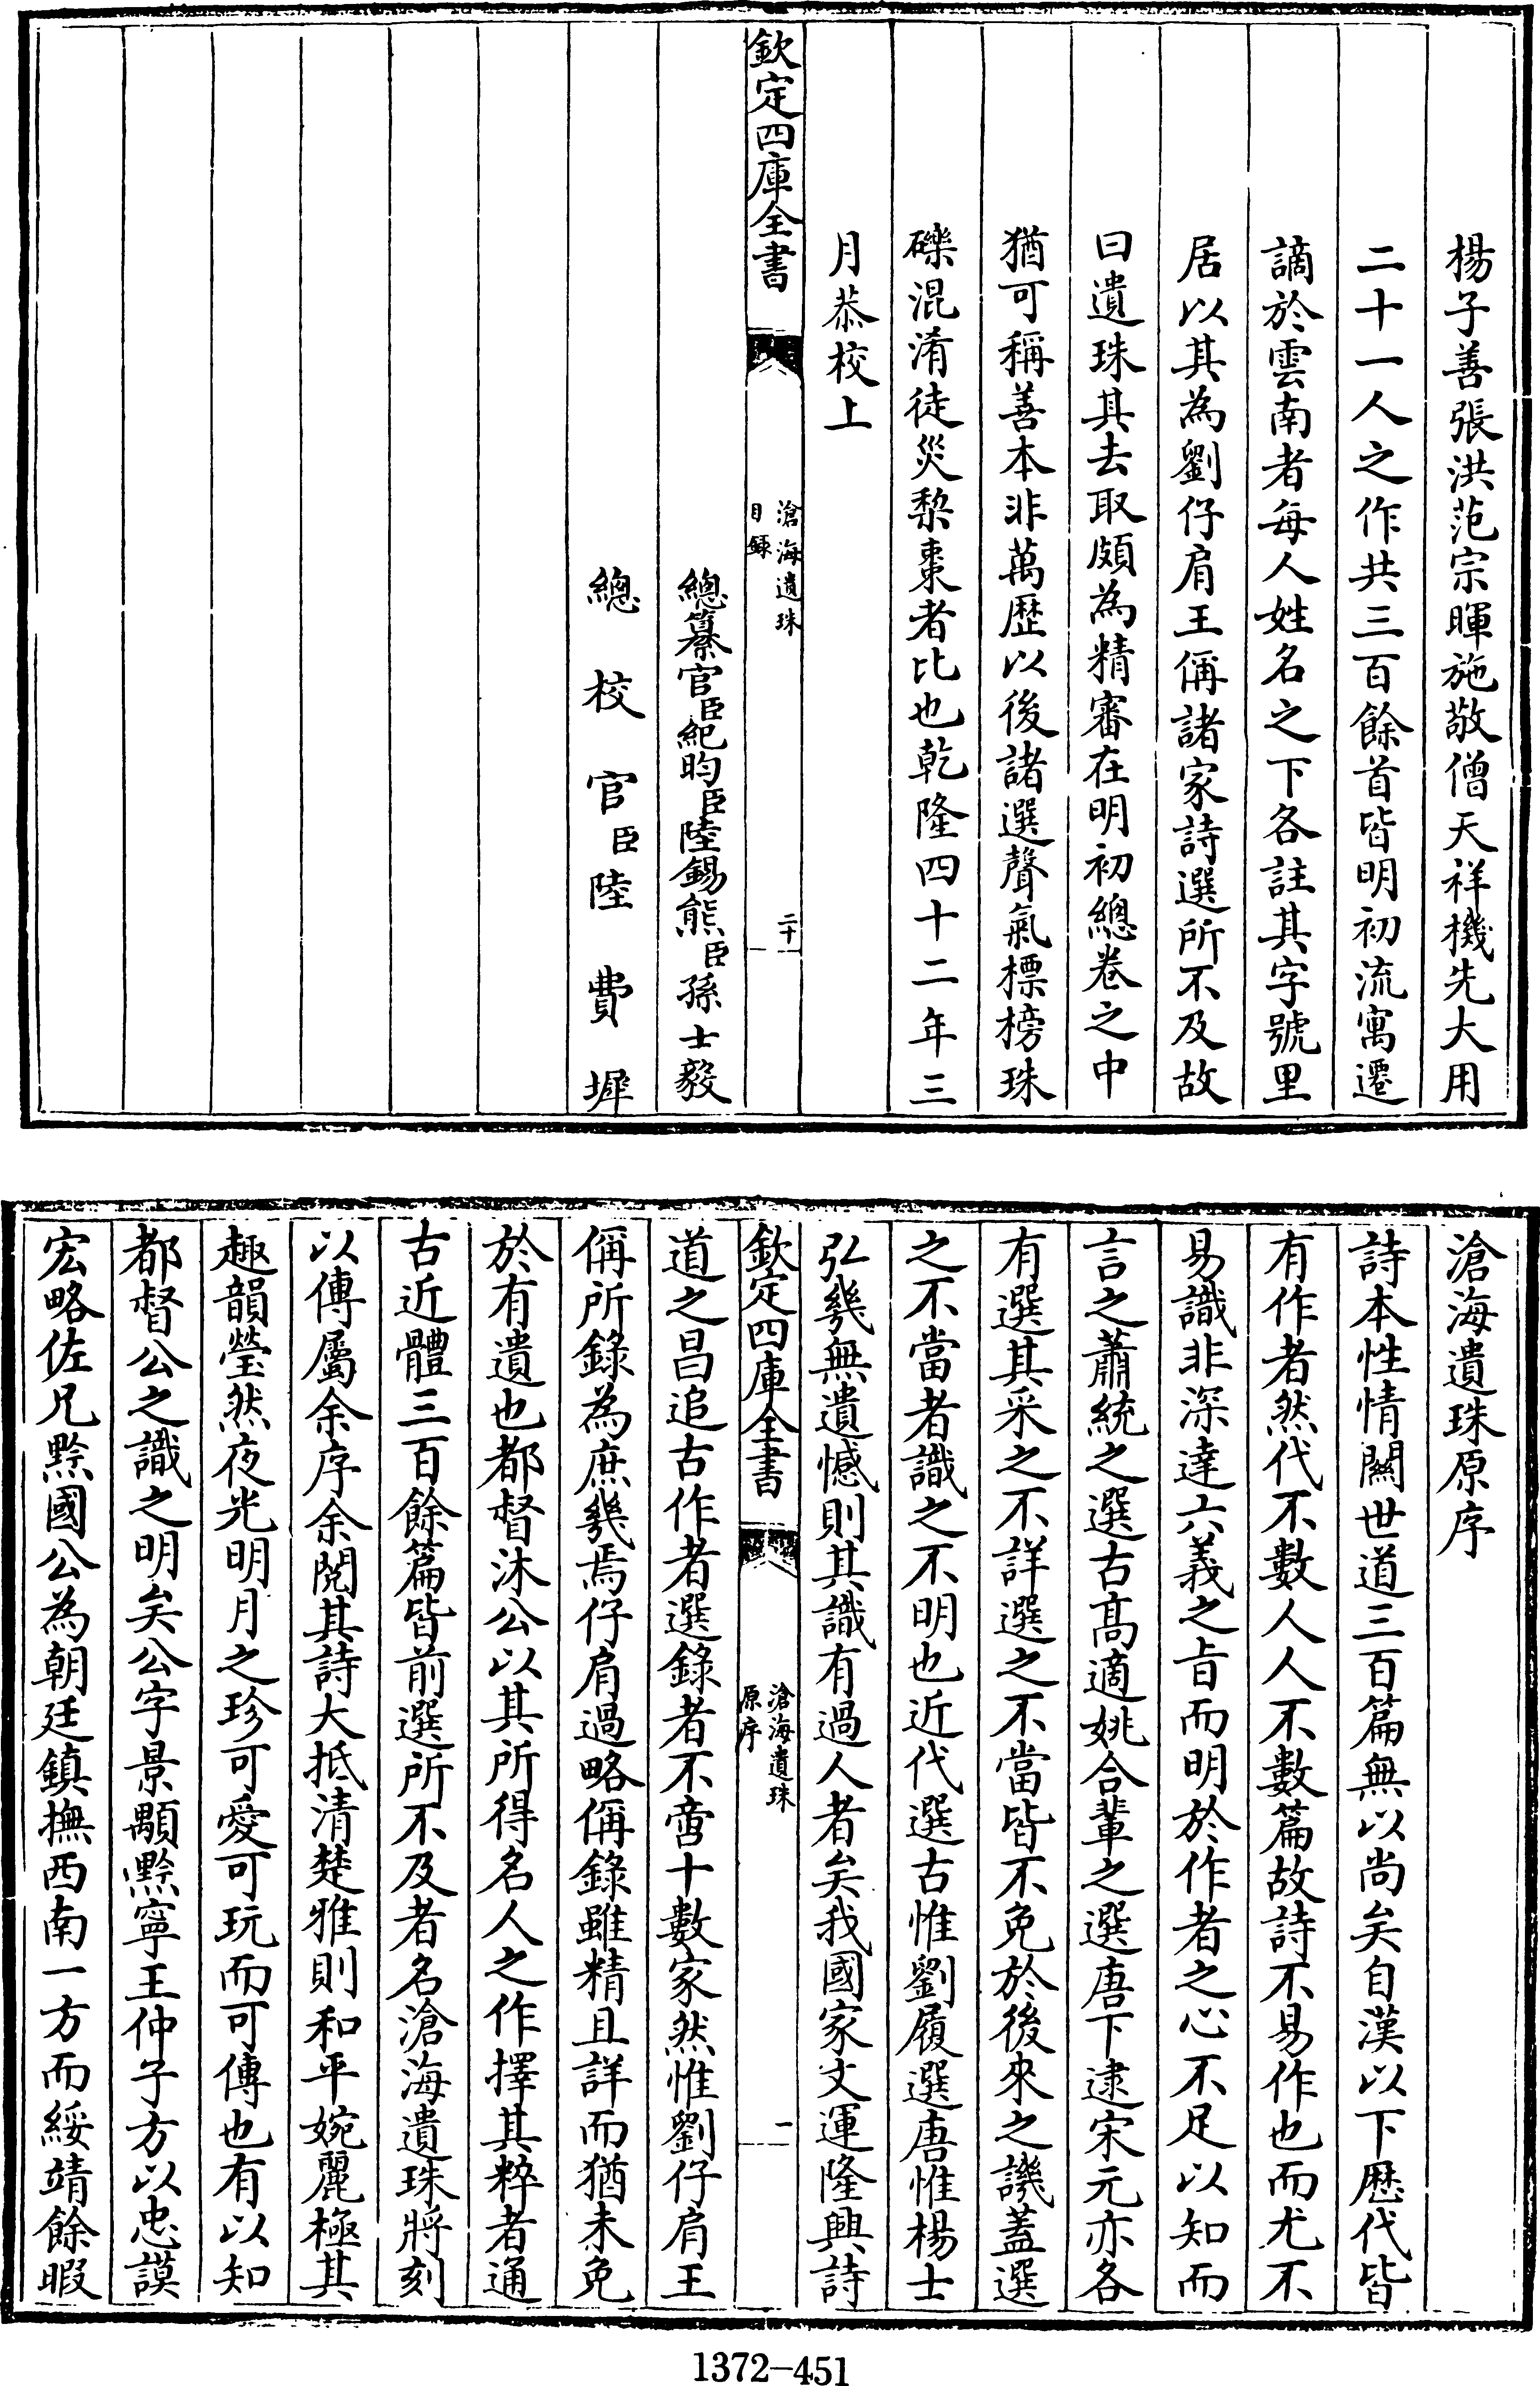 楊子善張洪范宗暉施敬僧天祥機先大用
二十一人之作共三百餘首皆明初流寓遷
謫於雲南者每人姓名之下各註其字號里
居以其為劉仔肩王偁諸家詩選所不及故
曰遺珠其去取頗為精審在明初總卷之中
猶可稱善本非萬歴以後諸選聲氣標榜珠
礫混淆徒災棃棗者比也乾隆四十二年三
月恭校上
欽定四庫全書
滄海遺珠
目録
二十一
總纂官臣紀昀臣陸錫熊臣孫士毅
總校官臣陸費墀
滄海遺珠原序
詩本性情闗世道三百篇無以尚矣自漢以下歴代皆
有作者然代不數人人不數篇故詩不易作也而尤不
易識非深達六義之㫖而明於作者之心不足以知而
言之蕭統之選古髙適姚合輩之選唐下逮宋元亦各
有選其采之不詳選之不當皆不免於後來之譏蓋選
之不當者識之不明也近代選古惟劉履選唐惟楊士
弘㡬無遺憾則其識有過人者矣我國家文運隆興詩
欽定四庫全書
滄海遺珠
原序
一
道之昌追古作者選錄者不啻十數家然惟劉仔肩王
偁所錄為庶㡬焉仔肩過略偁錄雖精且詳而猶未免
於有遺也都督沐公以其所得名人之作擇其粹者通
古近體三百餘篇皆前選所不及者名滄海遺珠將刻
以傳屬余序余閱其詩大抵清楚雅則和平婉麗極其
趣韻瑩然夜光明月之珍可愛可玩而可傳也有以知
都督公之識之明矣公字景顒黔寧王仲子方以忠謨
宏略佐兄黔國公為朝廷鎮撫西南一方而綏靖餘暇
1372-451